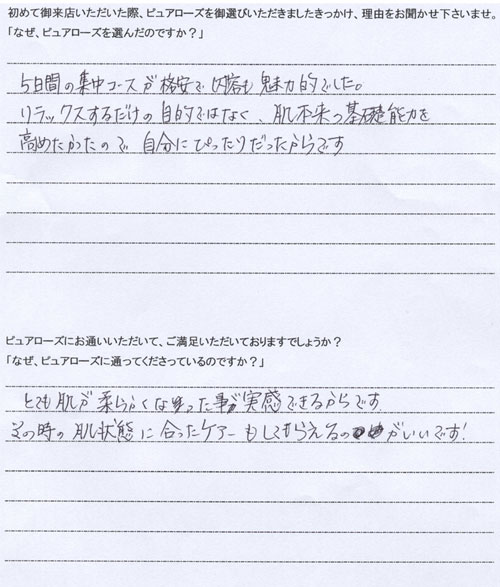 初めて御来店いただいた際、ピュアローズを御選びいただきましたきっかけ、理由をお聞かせ下さいませ。
「なぜ、ピュアローズを選んだのですか？」
5日間の集中コースが格安で内容も魅力的でした。
リラックスするだけの目的ではなく、肌本来の基礎能力を
高めたかったので 自分にぴったりだったからです
ピュアローズにお通いいただいて、ご満足いただいておりますでしょうか？
「なぜ、ピュアローズに通ってくださっているのですか？」
とても肌が柔らかくなった事が実感できるからです
その時の肌状態に合ったケアーもしてもらえるのがいいです！